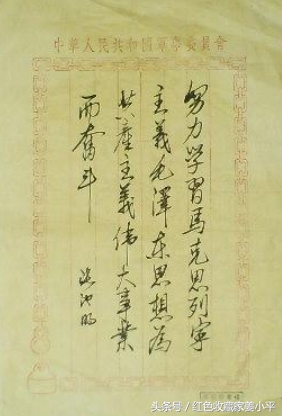 中華人民共和國軍事委員會
努力学習馬克思列宁
主義毛澤东思想為
共産主義偉大事業
而奮斗
头条号/红色收藏家姜小平